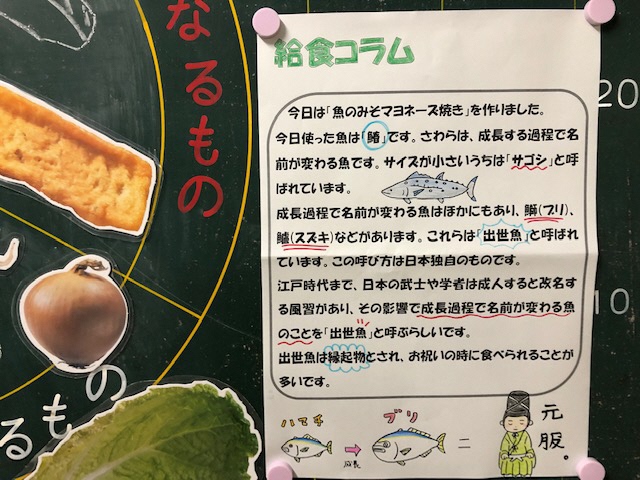 なるもの
るもの
20
10
給食コラム
今日は「魚のみそマヨネーズ焼き」を作りました。
今日使った魚は「鰆」です。さわらは、成長する過程で名
前が変わる魚です。サイズが小さいうちは「サゴシ」と呼
ばれています。
成長過程で名前が変わる魚はほかにもあり、鰤(ブリ)、
鱸(スズキ)などがあります。これらは「出世魚」と呼ばれ
ています。この呼び方は日本独自のものです。
江戸時代まで、日本の武士や学者は成人すると改名す
る風習があり、その影響で成長過程で名前が変わる魚
のことを「出世魚」と呼ぶらしいです。
出世魚は縁起物とされ、お祝いの時に食べられることが
多いです。
ハマチ
ブリ
成長
=
元服。